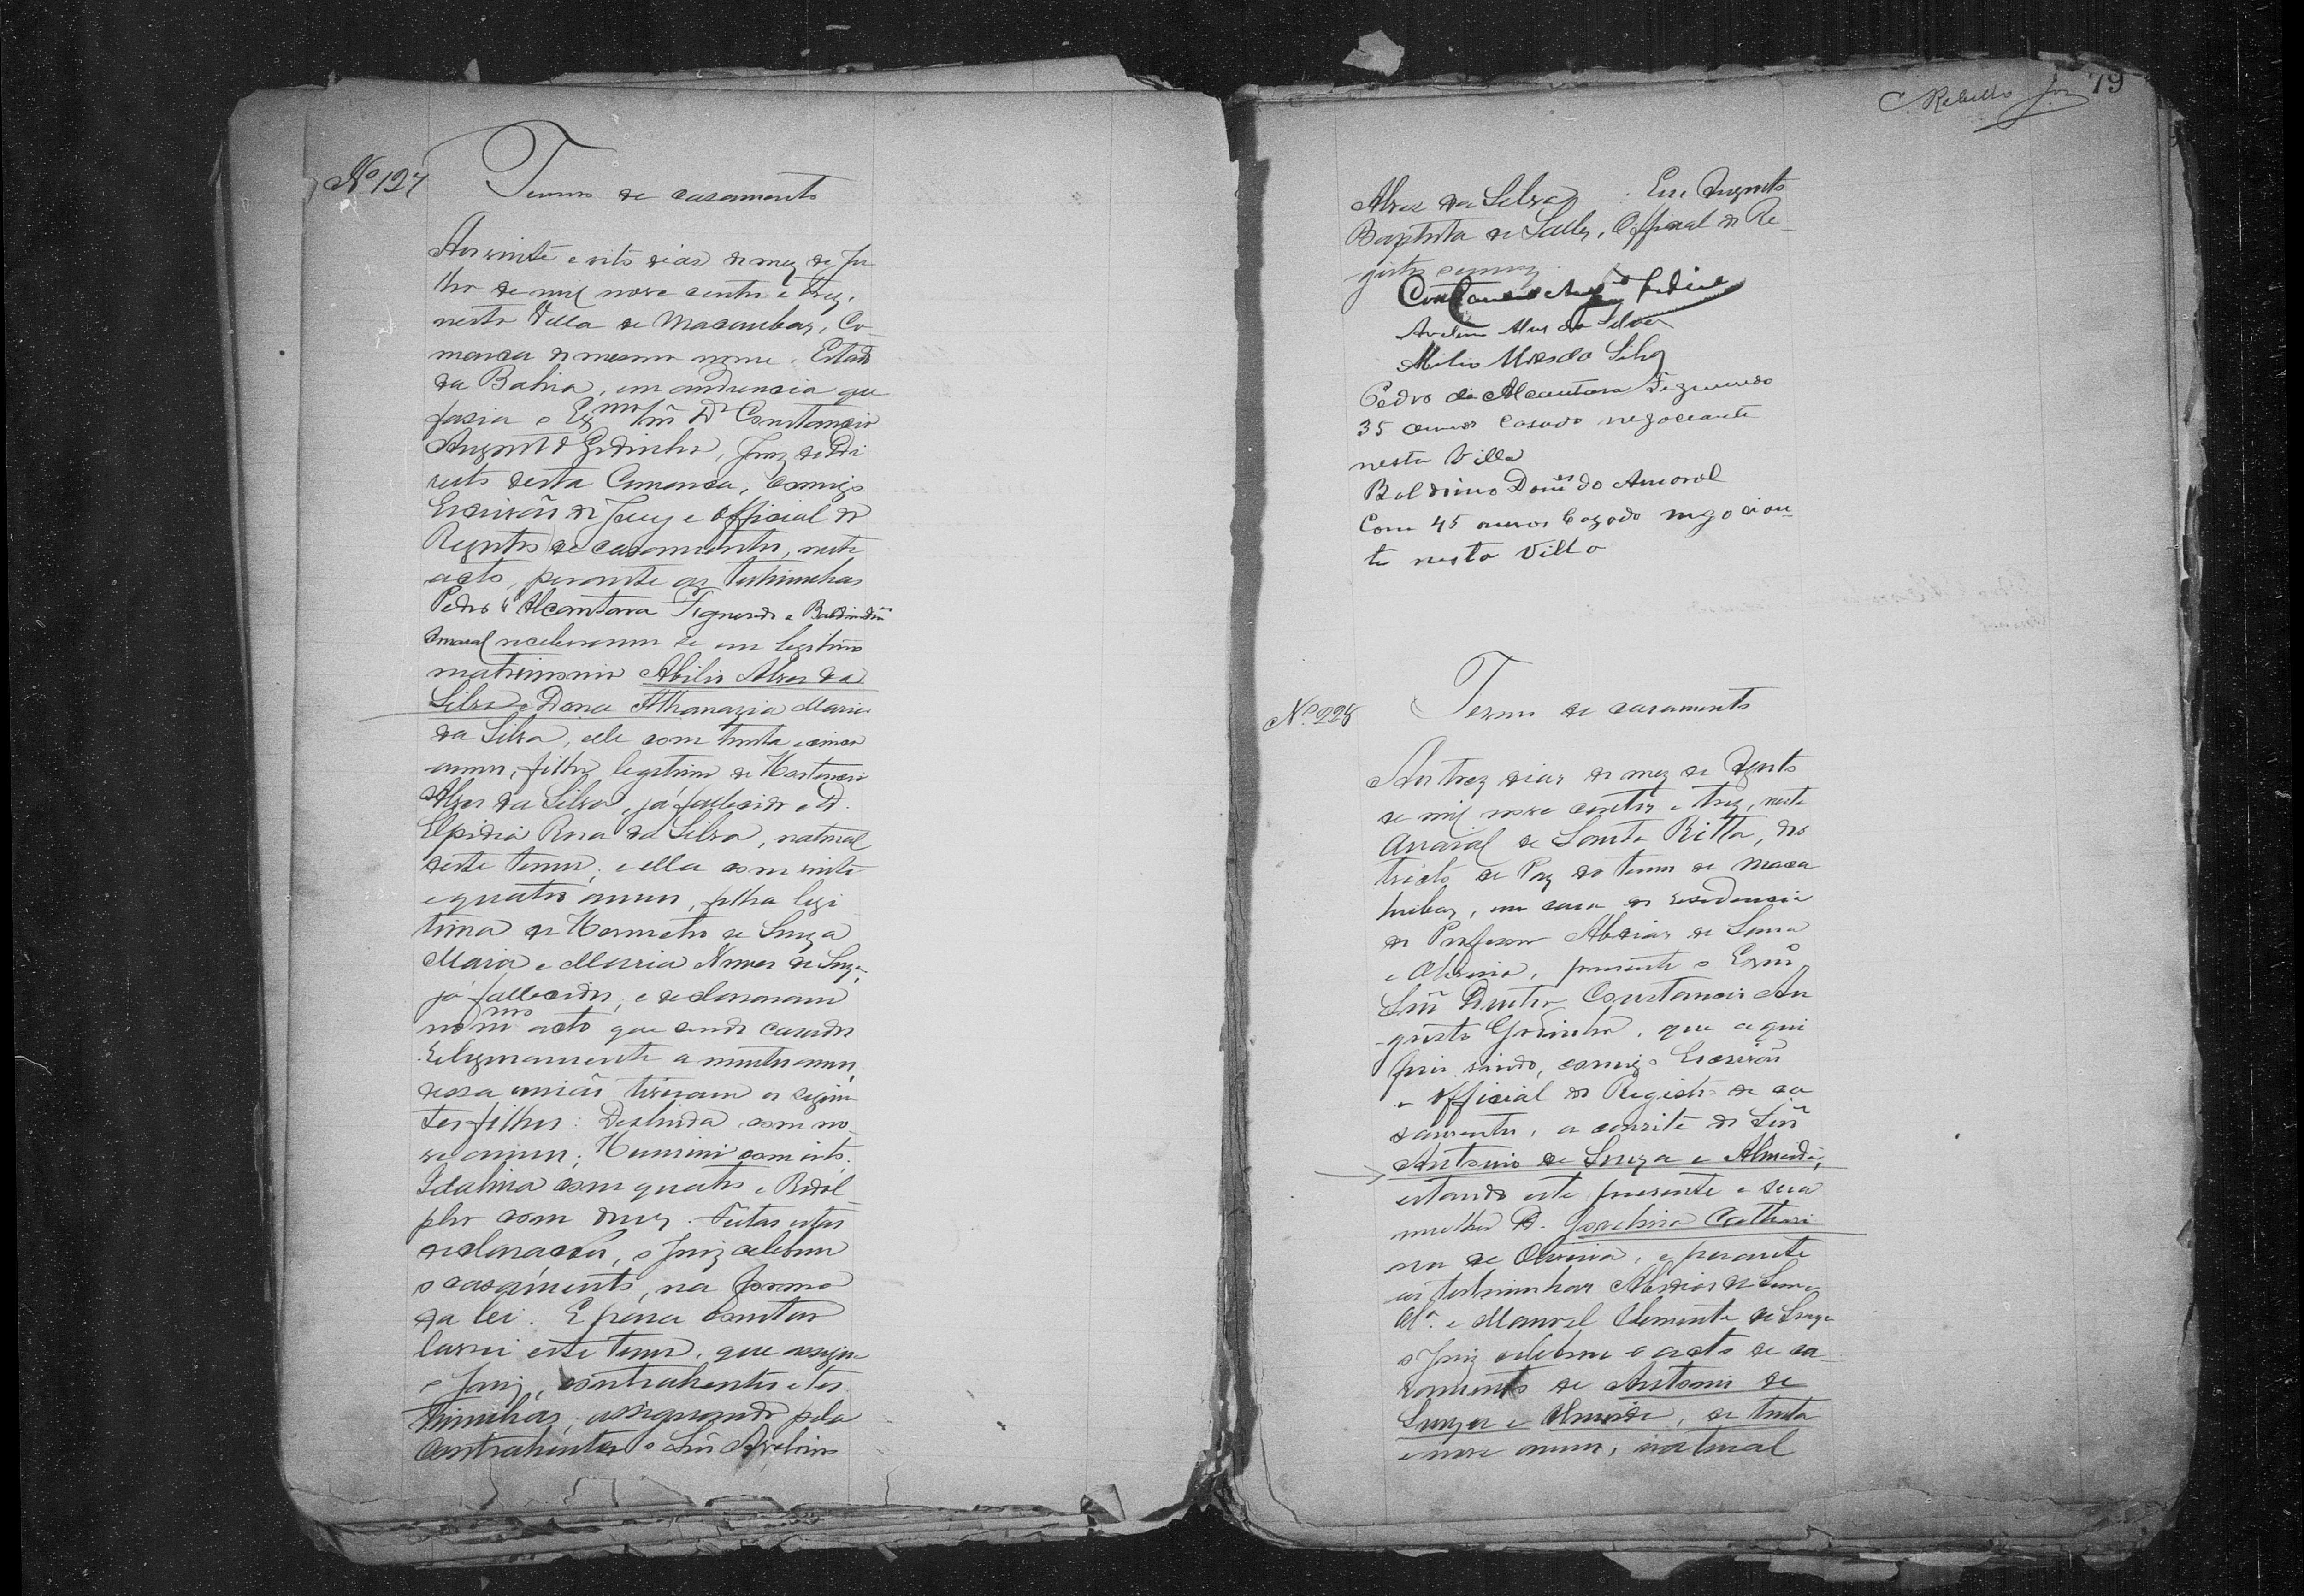 Nº 127
Termo de casamento
Aos vinte e oito dias do mez de Ju
lho de mil nove centos e trez,
nesta Villa de Macaubas, Co
marca do mesmo nome, Estado
da Bahia, em audiencia que
fasia o Exmo Snr Dr Constancio
Augusto Godinho, Juiz de Di
reito desta Comarca, comigo
Escrivão do Jury e Official do
Registro de casamentos, neste
acto, perante as testimunhas
Pedro d'Alcantara Figueredo e Baldino
Amaral receberam se em legitimo
matrimonio Abilio Alves da
Silva e Dona Athanazia Maria
da Silva, elle com trinta e cinco
annos, filho legitimo de
Alves da Silva, já fallecido e D.
Elpidia Rosa da Silva, natural
deste termo; e ella com vinte
e quatro annos, filha legi
tima de de Souza
Maia e Maria Nunes de Souza,
já fallecidos; e declararam
no mmo acto que sendo casados
religiosamente a muitos annos,
dessa união tiveram os seguin
tes filhos: com no
ve annos; com oito;
Idalina com quatro e Rodol
pho com dous. Feitas estas
declarações, o Juiz celebrou
o casamento, na forma
da lei. E para constar
lavrei este termo, que assigna
o Juiz, contrahentes e tes
timunhas, assignando pela
contrahente o Snr Avelino
79
C. Rebello Jor
Alves da Silva. Eu Augusto
Baptista de Salles, Official do Re
gistro escrevy.
Constancio Augto Godinho
Avelino Alves da Silva
Abilio Alves da Silva
Pedro de Alcantara Figueredo
35 annos Casado negociante
nesta Villa
Baldino Domes do Amaral
Com 45 annos Cazado negocian
te nesta Villa
Nº 228
Termo de casamento
Aos trez dias do mez de Agosto
de mil nove centos e trez, neste
Arraial de Santa Ritta, dis
tricto de Paz do termo de Maca
hubas, em casa de residencia
do Professor Abdias de
e Oliveira, presente o Exmo
Snr Doutor Constancio Au
gusto Godinho, que aqui
foi vindo, comigo Escrivão
e Official do Registro de ca
samentos, a convite do Snr
Antonio de Souza e Almeida,
estando este presente e sua
mulher D. Jovelina Catheri
na de Oliveira, e perante
as testimunhas Abdias de
Olra e Manoel Clemente de Souza
o Juiz celebrou o acto de ca
samento de Antonio de
Souza e Almeida, de trinta
e nove annos, natural